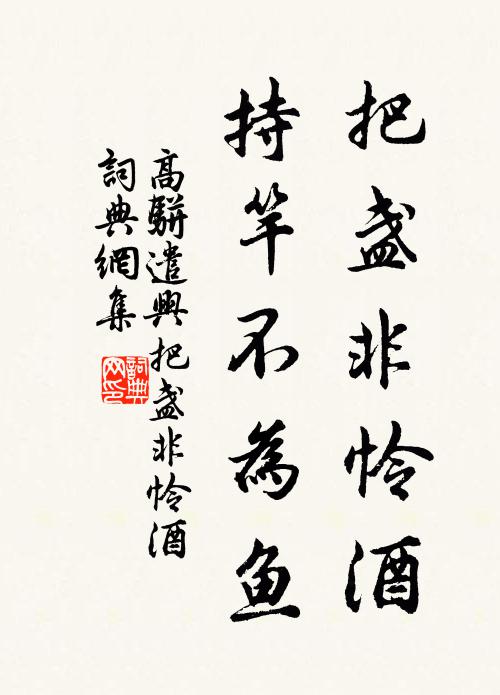 把盏非怜酒
持竿不為鱼
高駢遣興把盏非怜酒
詞典網集
詞典網印